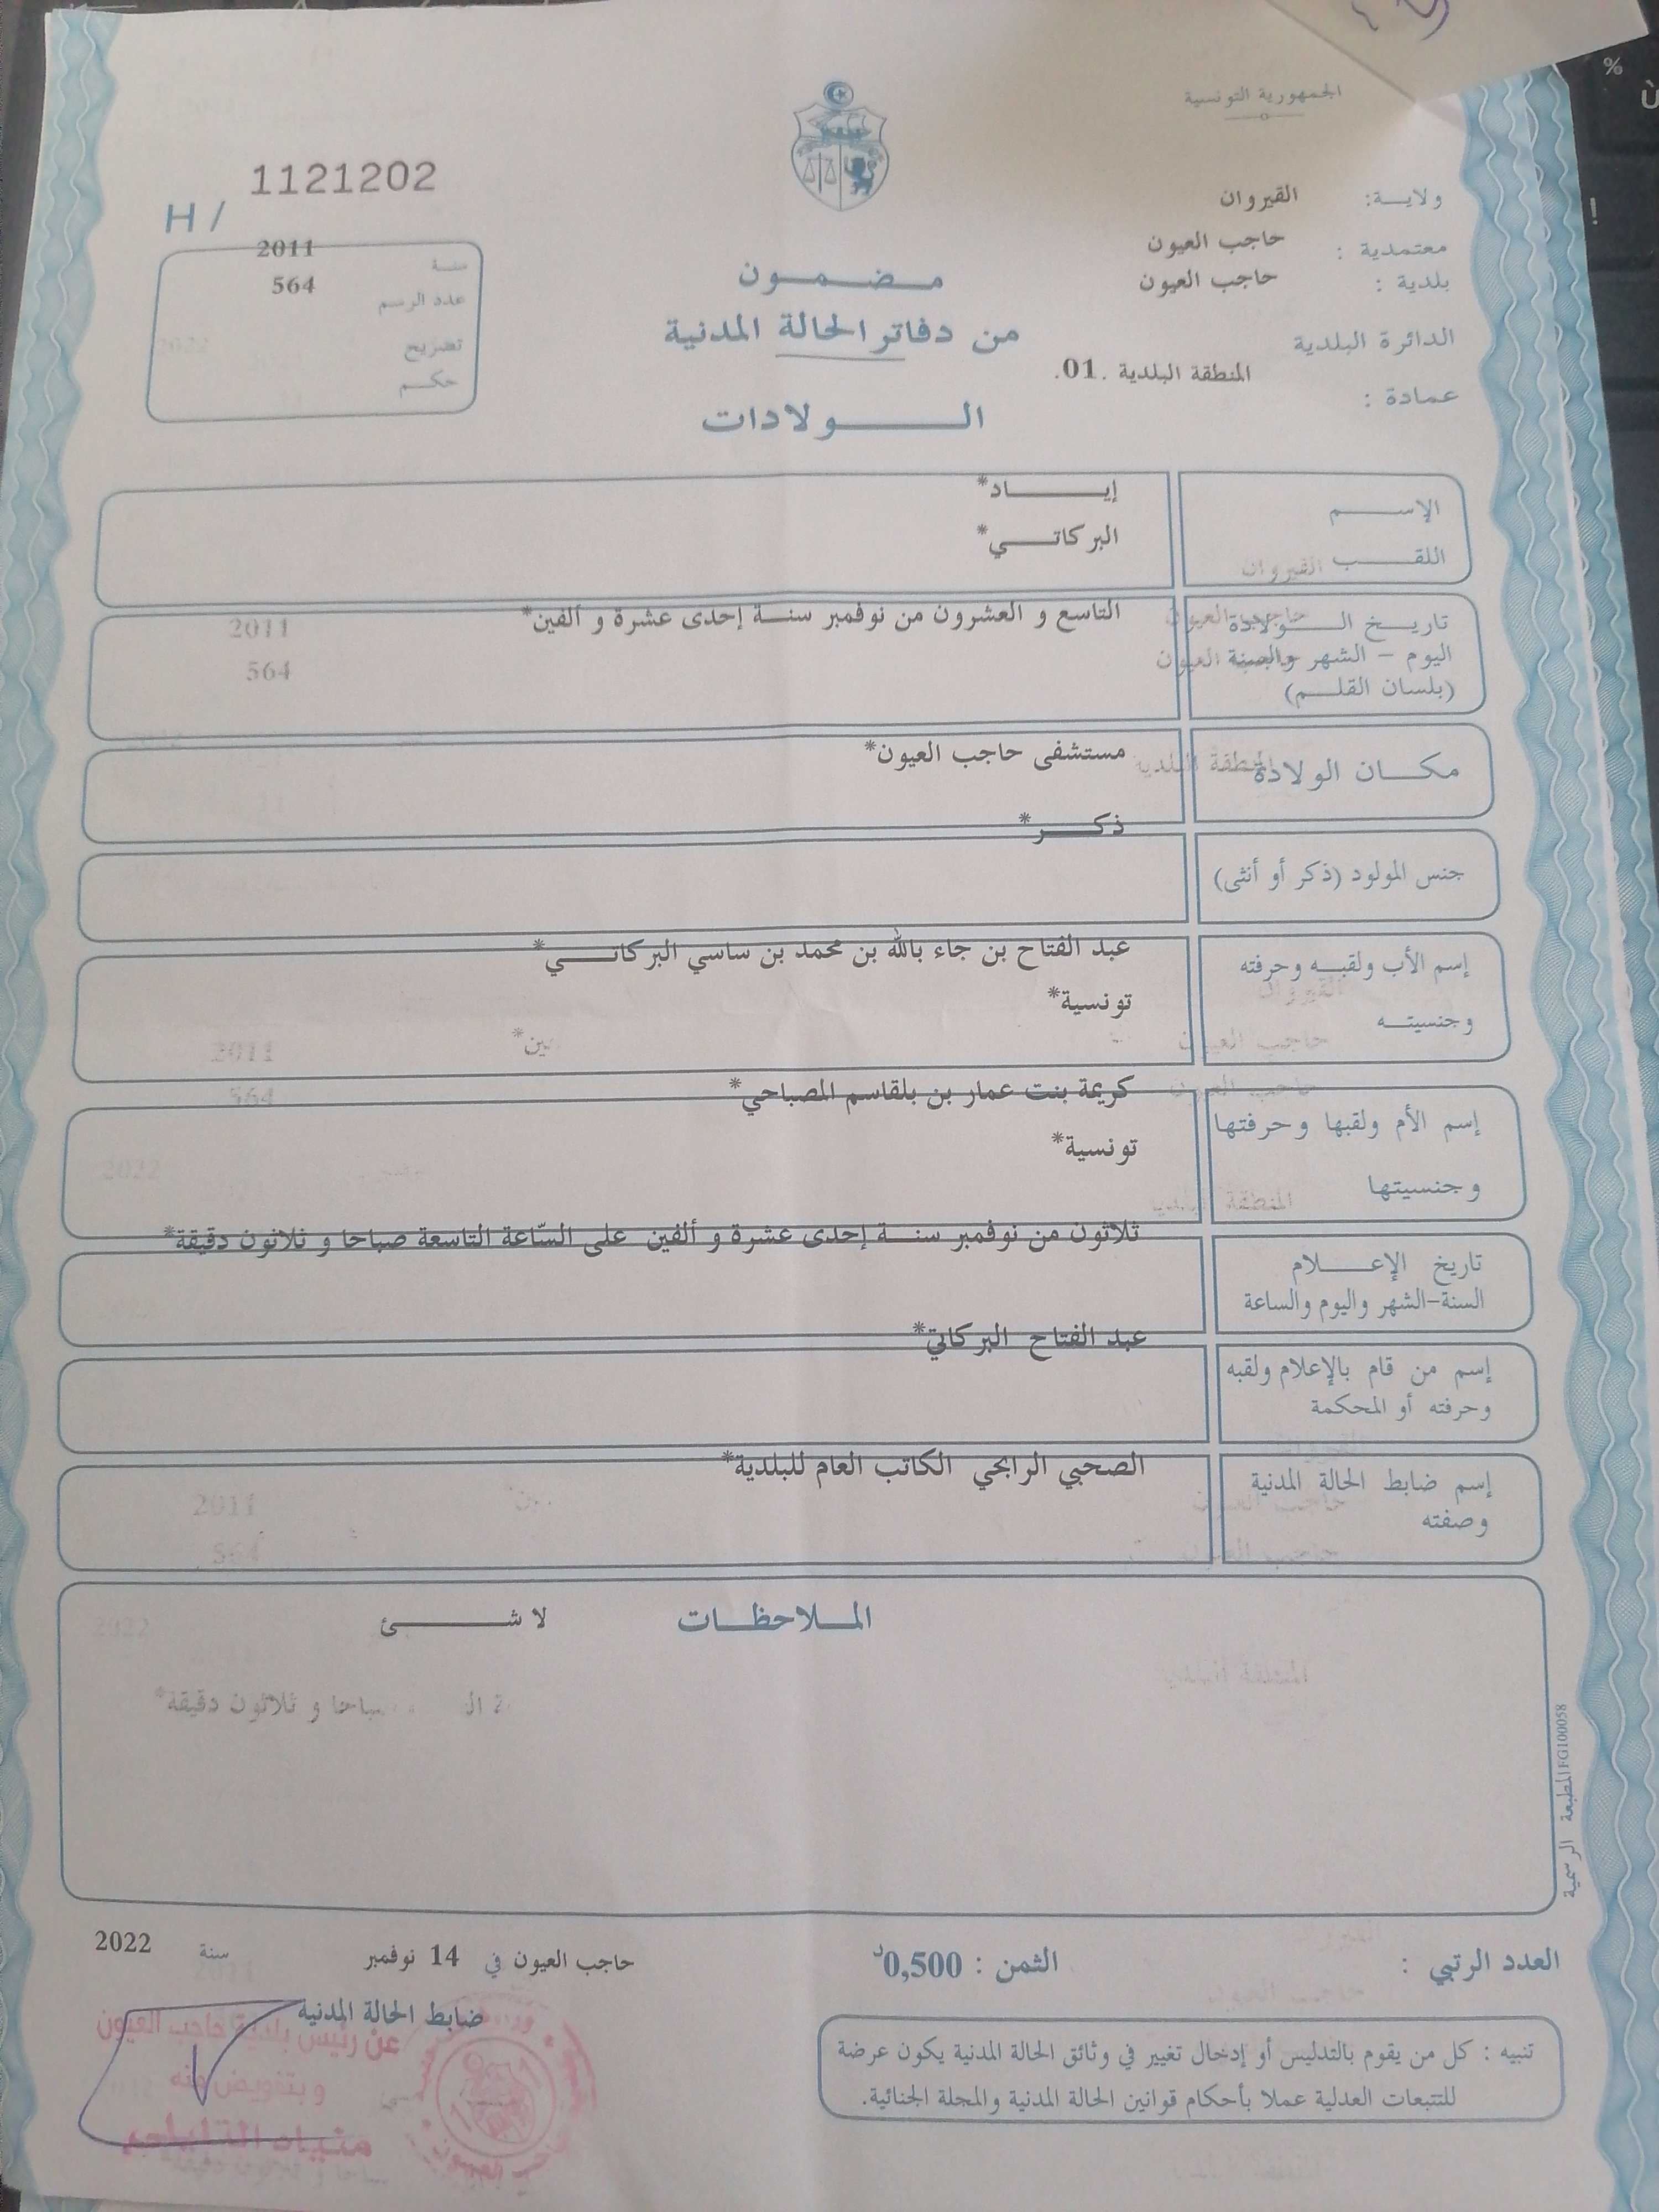 الجمهورية التونسية
ولايــة: القيروان
معتمدية : حاجب العيون
بلدية : حاجب العيون
الدائرة البلدية
المنطقة البلدية .01.
عمادة :
1121202
H /
سنة 2011
عدد الرسم 564
تصريح
حكـم
مـضـمـون
من دفاتر الحالة المدنية
الـولادات
الإسـم إيـاد*
اللقـب البركاتـي*
تاريـخ الـولادة التاسع و العشرون من نوفمبر سنـة إحدى عشرة و ألفين*
اليوم - الشهر والسنة
(بلسان القلـم)
مكـان الولادة مستشفى حاجب العيون*
جنس المولود (ذكر أو أنثى) ذكـر*
إسم الأب ولقبـه وحرفته عبد الفتاح بن جاء بالله بن محمد بن ساسي البركاتـي*
وجنسيتـه تونسية*
إسم الأم ولقبها وحرفتها كريمة بنت عمار بن بلقاسم المصباحي*
وجنسيتها تونسية*
تاريخ الإعـلام ثلاثون من نوفمبر سنـة إحدى عشرة و ألفين على السّاعة التاسعة صباحا و ثلاثون دقيقة*
السنة-الشهر واليوم والساعة
إسم من قام بالإعلام ولقبه عبد الفتاح البركاتي*
وحرفته أو المحكمة
إسم ضابط الحالة المدنية الصحبي الرابحي الكاتب العام للبلدية*
وصفته
المـلاحظـات لا شـئ
المطبعة الرسمية FG100058
العدد الرتبي : الثمن : 0,500د
حاجب العيون في 14 نوفمبر سنة 2022
ضابط الحالة المدنية
عن رئيس بلدية حاجب العيون
وبتفويض منه
تنبيه : كل من يقوم بالتدليس أو إدخال تغيير في وثائق الحالة المدنية يكون عرضة
للتتبعات العدلية عملا بأحكام قوانين الحالة المدنية والمجلة الجنائية.